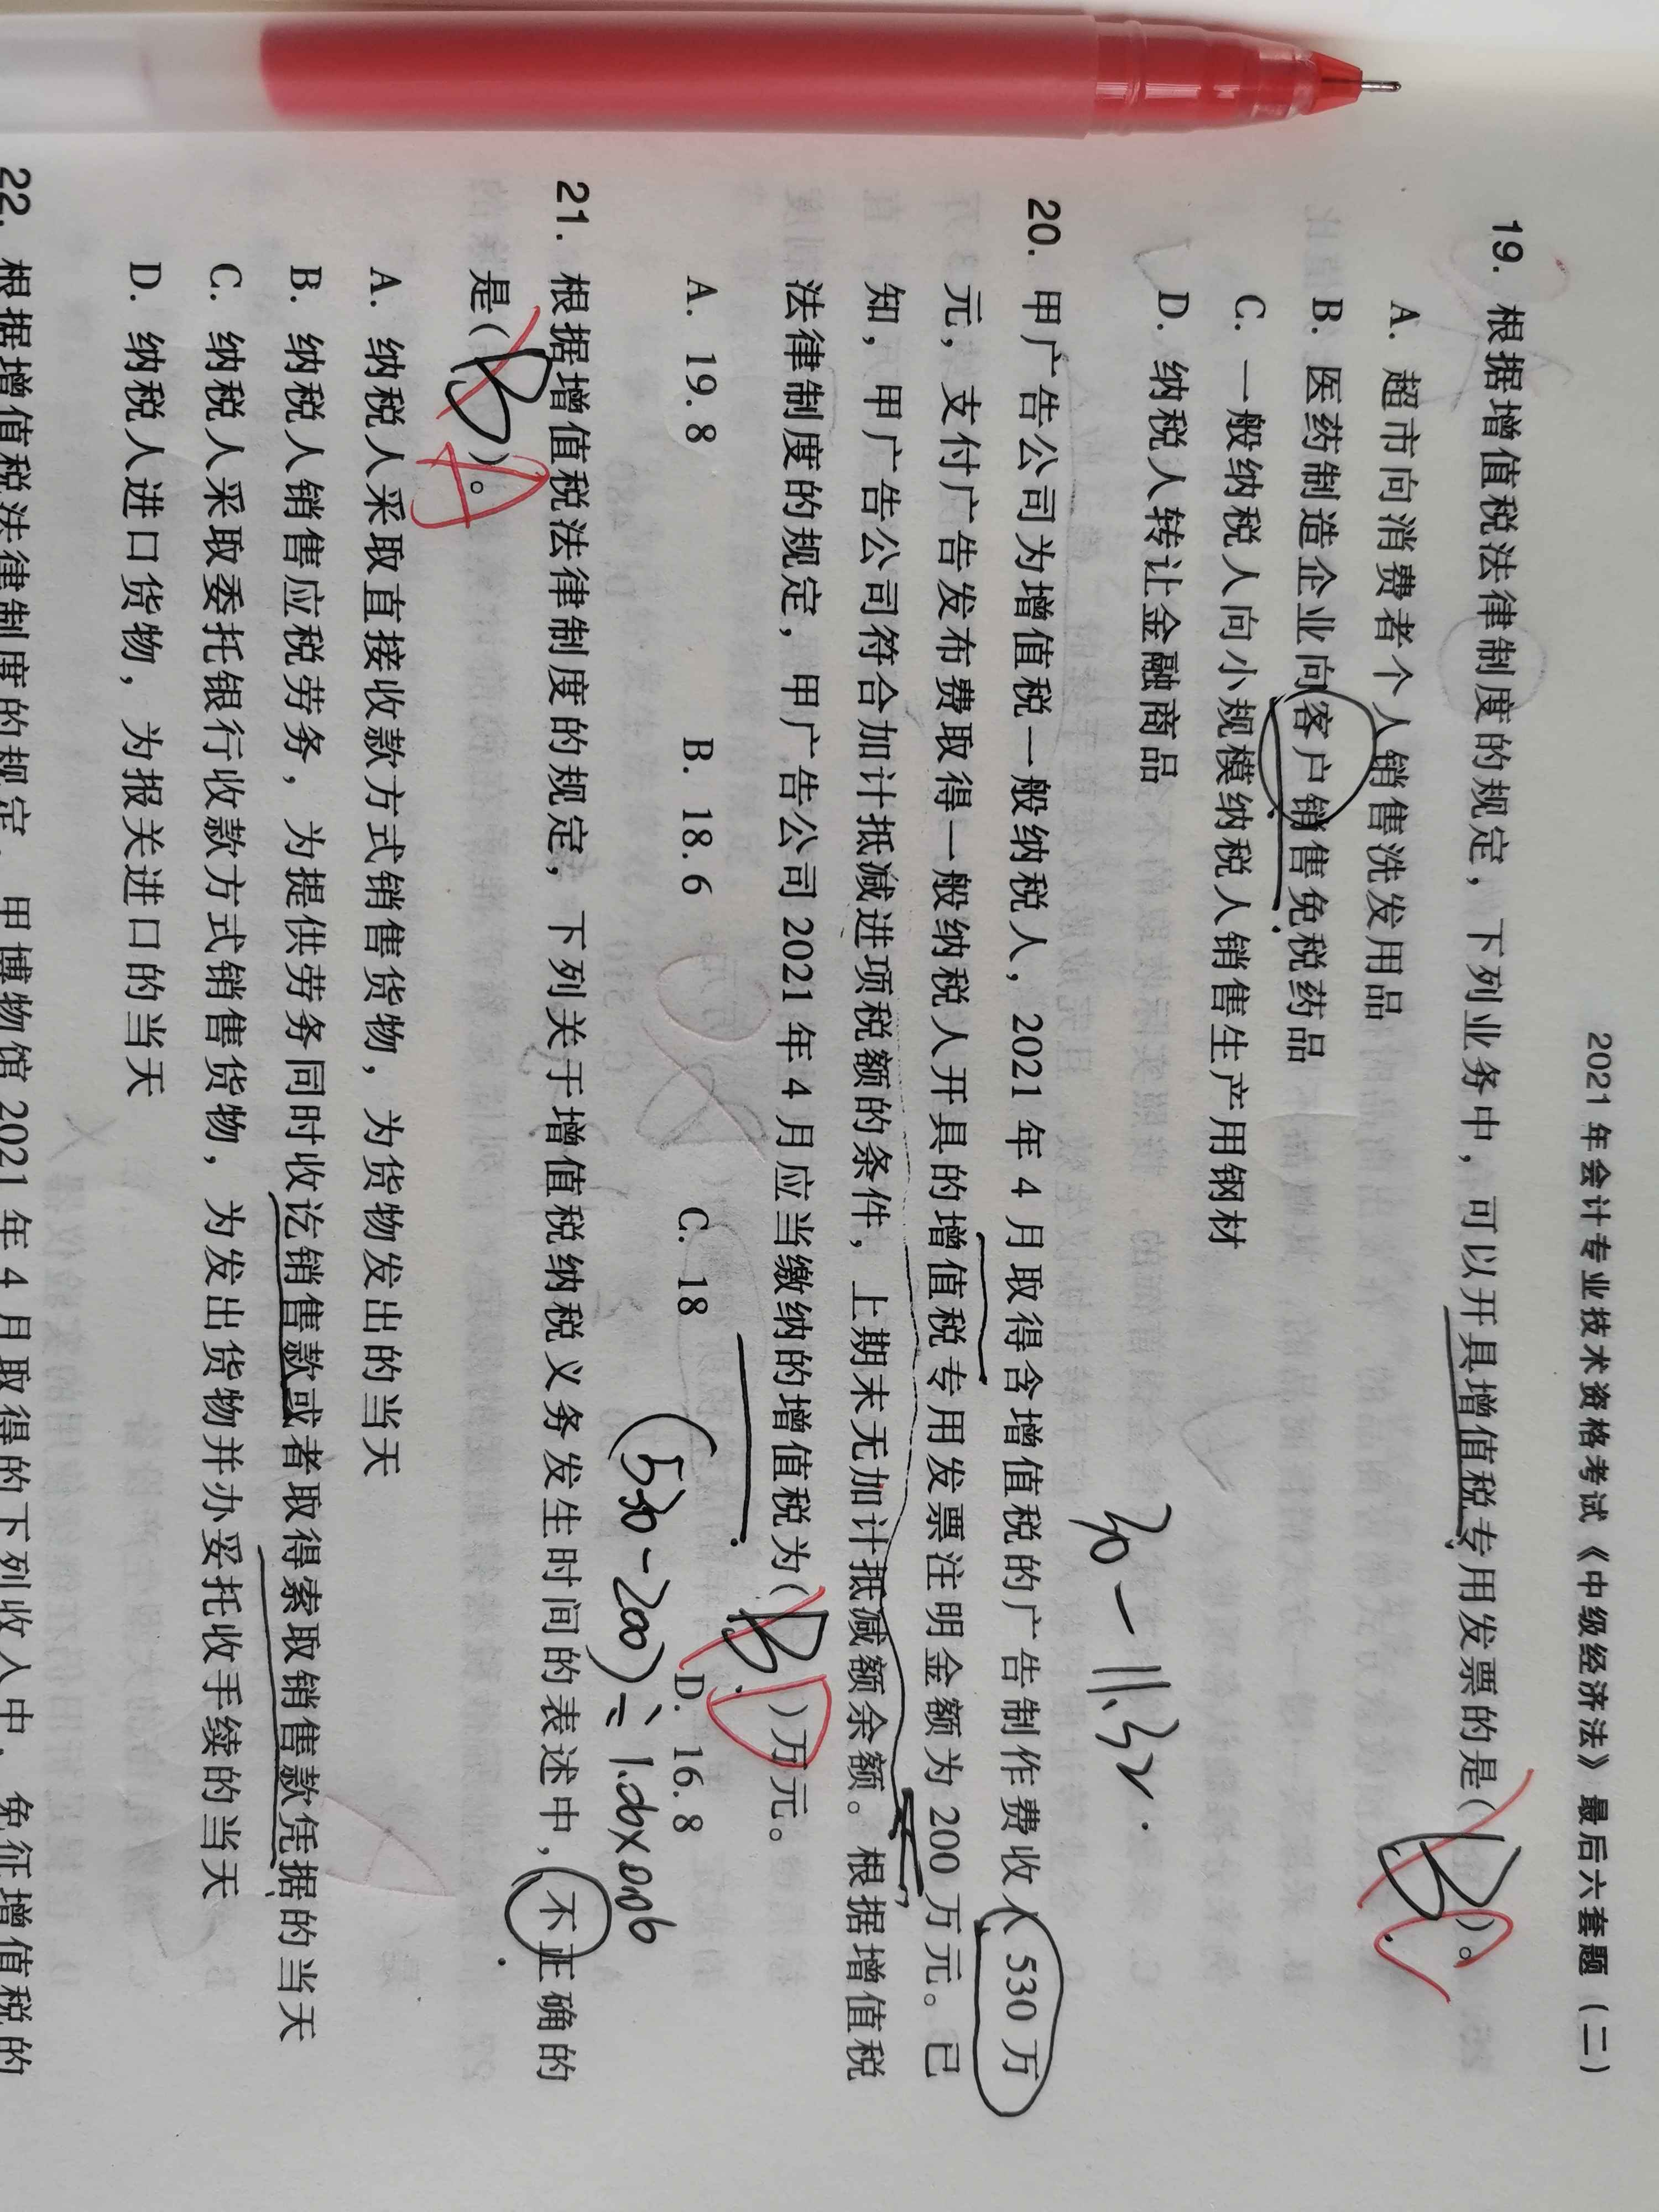 2021年会计专业技术资格考试《中级经济法》最后六套题（二）
19. 根据增值税法律制度的规定，下列业务中，可以开具增值税专用发票的是( B )。 C
A. 超市向消费者个人销售洗发用品
B. 医药制造企业向客户销售免税药品
C. 一般纳税人向小规模纳税人销售生产用钢材
D. 纳税人转让金融商品
30-11.32
20. 甲广告公司为增值税一般纳税人，2021年4月取得含增值税的广告制作费收入530万
元，支付广告发布费取得一般纳税人开具的增值税专用发票注明金额为200万元。已
知，甲广告公司符合加计抵减进项税额的条件，上期末无加计抵减额余额。根据增值税
法律制度的规定，甲广告公司2021年4月应当缴纳的增值税为( B )万元。 D
A. 19.8 B. 18.6 C. 18 D. 16.8
(530-200)÷1.06×0.06
21. 根据增值税法律制度的规定，下列关于增值税纳税义务发生时间的表述中，不正确的
是( B )。 A
A. 纳税人采取直接收款方式销售货物，为货物发出的当天
B. 纳税人销售应税劳务，为提供劳务同时收讫销售款或者取得索取销售款凭据的当天
C. 纳税人采取委托银行收款方式销售货物，为发出货物并办妥托收手续的当天
D. 纳税人进口货物，为报关进口的当天
22. 根据增值税法律制度的规定，甲博物馆2021年4月取得的下列收入中，免征增值税的